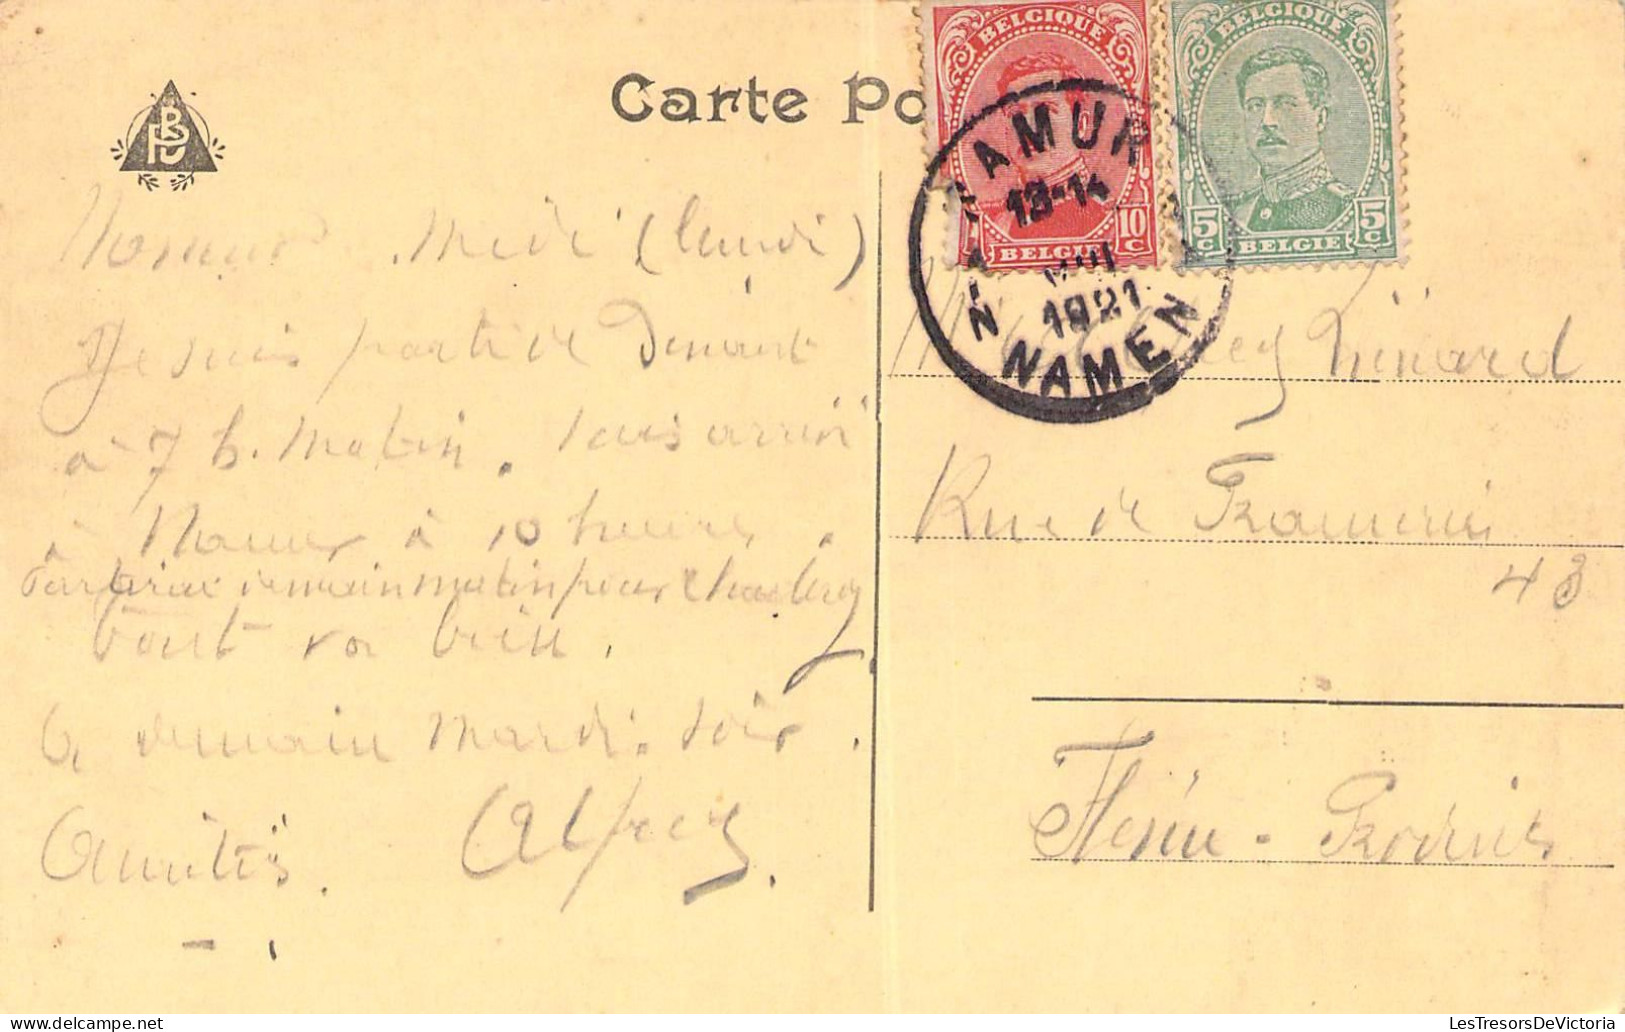 Carte Po
BELGIQUE
10 c
BELGIE
BELGIQUE
5 c 5 c
BELGIE
NAMUR
13-14
VIII
1921
NAMEN
Namur Midi (lundi)
Je suis parti de Dinant
à 7 h. Matin. suis arrivé
à Namur à 10 heures.
Partirai demain matin pour Charleroy
tout va bien.
à demain Mardi soir.
Amitiés. Alfred.
Linard
Rue de Frameries
43
Flénu - Produits
LesTresorsDeVictoria.com